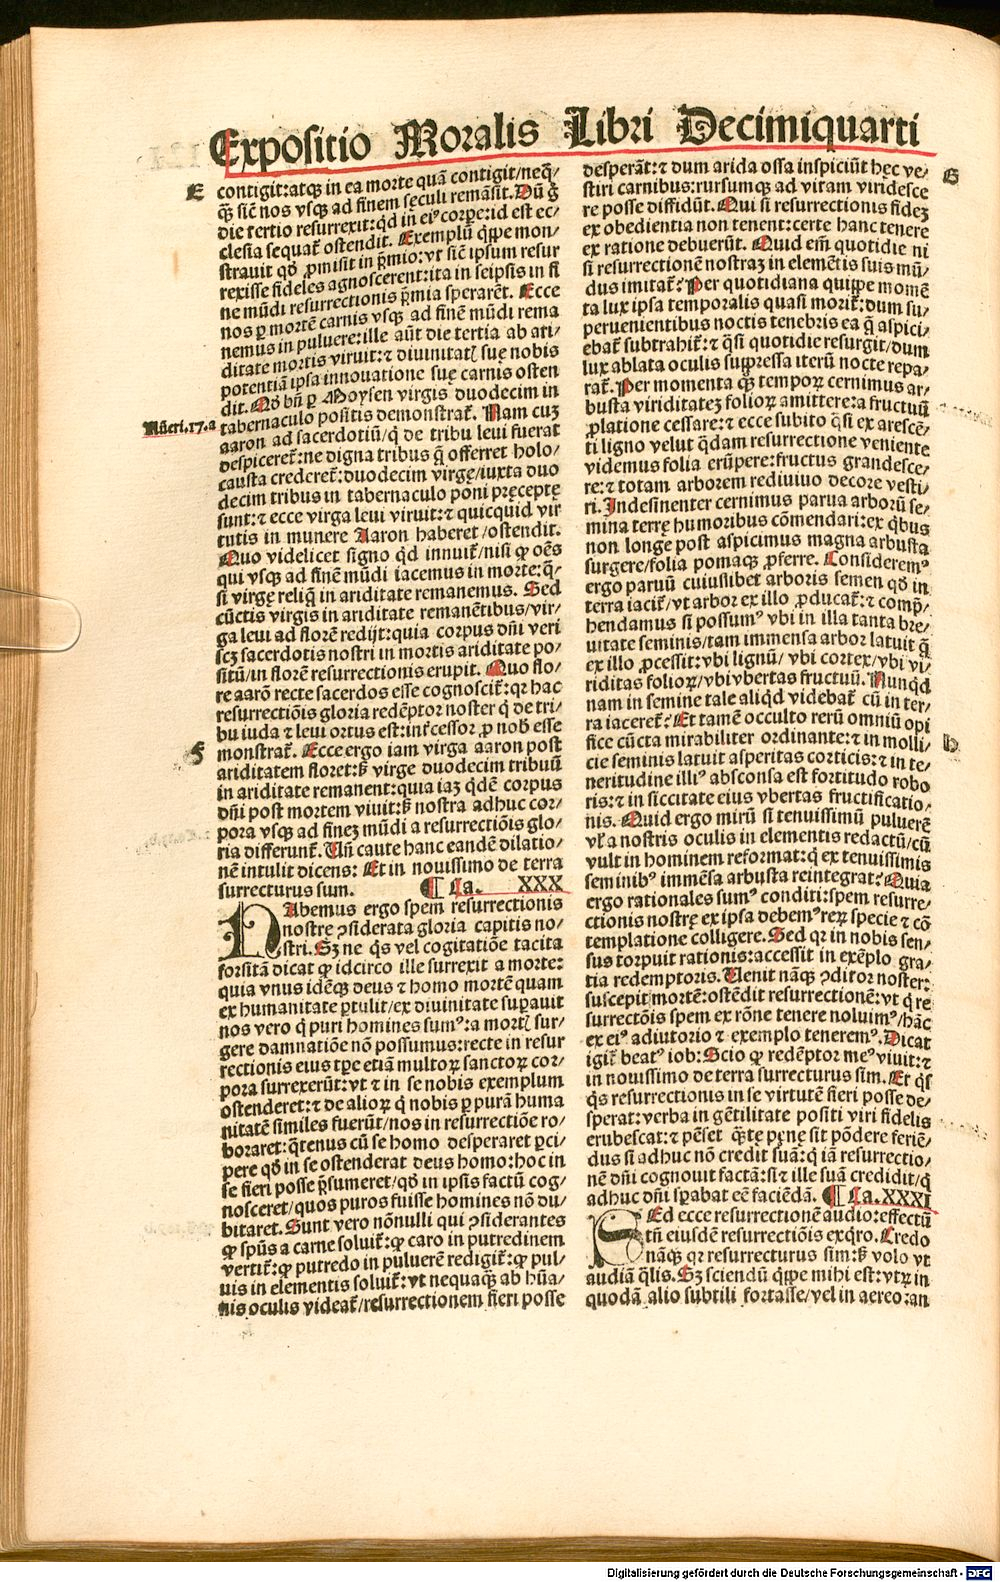 Expositio Moralis Libri Decimiquarti
E
contigit: atqꝫ in ea morte quā contigit/neq̄ꝫ/
q̄ꝫ sic̄ nos vsqꝫ ad finem sęculi remāsit. Dū g̊
die tertio resurrexit: qd̄ in eiꝰ corꝑe: id est ec/
clesia sequat᷑ ostendit. Exemplū q̇ppe mon/
stravit qd̛ ꝓmisit in p̄mio: vt sic̄ ipsum resur
rexisse fideles agnoscerent: ita in seipsis in fi
ne mūdi resurrectionis p̄mia sperarēt. Ecce
nos ꝑ mortē carnis vsqꝫ ad finē mūdi rema
nemus in puluere: ille aūt die tertia ab ari/
ditate mortis viruit: ⁊ diuinitatꝭ suę nobis
potentiā ipsa innouatione suę carnis osten
dit. Qd̛ bn̄ ꝑ Moysen virgis duodecim in
Nūeri.17.a
tabernaculo positis demonstrat᷑. Nam cuꝫ
aaron ad sacerdotiū/q̇ de tribu leui fuerat
despiceret᷑: ne digna tribus q̄ offerret holo/
causta crederet᷑: duodecim virgę/iuxta duo
decim tribus in tabernaculo poni pręceptę
sunt: ⁊ ecce virga leui viruit: ⁊ quicquid vir
tutis in munere Aaron haberet/ostendit.
Quo videlicet signo qd̄ innuit᷑/nisi ꝙ oēs
qui vsqꝫ ad finē mūdi iacemus in morte: q̄/
si virgę reliq̄ in ariditate remanemus. Sed
cūctis virgis in ariditate remanētibus/vir/
ga leui ad florē redijt: quia corpus dn̄i veri
scꝫ sacerdotis nostri in mortis ariditate po/
sitū/in florē resurrectionis erupit. Quo flo/
re aarō recte sacerdos esse cognoscit᷑: qꝛ hac
resurrectiōis gloria redēptor noster q̇ de tri/
bu iuda ⁊ leui ortus est: int᷑cessor ꝓ nob̄ esse
F
monstrat᷑. Ecce ergo iam virga aaron post
ariditatem floret: sꝫ virge duodecim tribuū
in ariditate remanent: quia iaꝫ q̇dē corpus
dn̄i post mortem viuit: sꝫ nostra adhuc cor/
pora vsqꝫ ad fineꝫ mūdi a resurrectiōis glo/
ria differunt᷑. Vn̄ caute hanc eandē dilatio/
nē intulit dicens: Et in nouissimo de terra
surrecturus sum. ¶ Ca. XXX
HAbemus ergo spem resurrectionis
nostre ꝯsiderata gloria capitis no/
stri. Sꝫ ne q̇s vel cogitatiōe tacita
forsitā dicat ꝙ idcirco ille surrexit a morte:
quia vnus idēqꝫ deus ⁊ homo mortē quam
ex humanitate ꝑtulit/ex diuinitate suꝑauit
nos vero q̇ puri homines sumꝰ: a mortꝭ sur/
gere damnatiōe nō possumus: recte in resur
rectionis eius tꝑe etiā multoꝝ sanctoꝝ cor/
pora surrexerūt: vt ⁊ in se nobis exemplum
ostenderet: ⁊ de alioꝝ q̇ nobis ꝑ purā huma
nitatē similes fuerūt/nos in resurrectiōe ro/
boraret: q̄tenus cū se homo desperaret ꝑci/
pere qd̛ in se ostenderat deus homo: hoc in
se fieri posse p̄sumeret/qd̛ in ipsis factū cog/
nosceret/quos puros fuisse homines nō du/
bitaret. Sunt vero nōnulli qui ꝯsiderantes
ꝙ spūs a carne soluit᷑: ꝙ caro in putredinem
vertit᷑: ꝙ putredo in puluerē redigit᷑: ꝙ pul/
uis in elementis soluit᷑: vt nequaqꝫ ab hūa/
nis oculis videat᷑/resurrectionem fieri posse
desperāt: ⁊ dum arida ossa inspiciūt hęc ve/
G
stiri carnibus: rursumqꝫ ad vitam viridesce
re posse diffidūt. Qui si resurrectionis fideꝫ
ex obedientia non tenent: certe hanc tenere
ex ratione debuerūt. Quid em̄ quotidie ni
si resurrectionē nostraꝫ in elemētis suis mū/
dus imitat᷑? Per quotidiana quippe momē
ta lux ipsa temporalis quasi morit᷑: dum su/
peruenientibus noctis tenebris ea q̄ aspici/
ebat᷑ subtrahit᷑: ⁊ q̄si quotidie resurgit/dum
lux ablata oculis suppressa iterū nocte repa/
rat᷑. Per momenta qꝫ tempoꝝ cernimus ar/
busta viriditateꝫ folioꝝ amittere: a fructuū
ꝓlatione cessare: ⁊ ecce subito q̄si ex arescē/
ti ligno velut q̄dam resurrectione veniente
videmus folia erūpere: fructus grandesce/
re: ⁊ totam arborem rediuiuo decore vesti/
ri. Indesinenter cernimus parua arborū se/
mina terrę humoribus cōmendari: ex q̇bus
non longe post aspicimus magna arbusta
surgere/folia pomaqꝫ ꝓferre. Consideremꝰ
ergo paruū cuiuslibet arboris semen qd̛ in
terra iacit᷑/vt arbor ex illo ꝓducat᷑: ⁊ comp̄/
hendamus si possumꝰ vbi in illa tanta bre/
uitate seminis/tam immensa arbor latuit q̄
ex illo ꝓcessit: vbi lignū/ vbi cortex/vbi vi/
riditas folioꝝ/vbi vbertas fructuū. Nunqd̄
nam in semine tale aliqd̄ videbat᷑ cū in ter/
ra iaceret᷑? Et tamē occulto rerū omniū opi
H
fice cūcta mirabiliter ordinante: ⁊ in molli/
cie seminis latuit asperitas corticis: ⁊ in te/
neritudine illiꝰ absconsa est fortitudo robo
ris: ⁊ in siccitate eius vbertas fructificatio/
nis. Quid ergo mirū si tenuissimū puluerē
vt᷑ a nostris oculis in elementis redactū/cū
vult in hominem reformat: q̇ ex tenuissimis
seminibꝰ immēsa arbusta reintegrat? Quia
ergo rationales sumꝰ conditi: spem resurre/
ctionis nostrę ex ipsa debemꝰ reꝝ specie ⁊ cō
templatione colligere. Sed qꝛ in nobis sen/
sus torpuit rationis: accessit in exēplo gra/
tia redemptoris. Uenit nāqꝫ ꝯditor noster:
suscepit mortē: ostēdit resurrectionē: vt q̇ re
surrectōis spem ex rōne tenere noluimꝰ/hāc
ex eiꝰ adiutorio ⁊ exemplo teneremꝰ. Dicat
igit᷑ beatꝰ iob: Scio ꝙ redēptor meꝰ viuit: ⁊
in nouissimo de terra surrecturus sim. Et q̇s
q̇s resurrectionis in se virtutē fieri posse de/
sperat: verba in gētilitate positi viri fidelis
erubescat: ⁊ pēset q̄te pęnę sit pōdere feriē/
dus si adhuc nō credit suā: q̇ iā resurrectio/
nē dn̄i cognouit factā: si ⁊ ille suā credidit/q̇
adhuc dn̄i sꝑabat eē faciēdā. ¶ Ca.XXXI
SEd ecce resurrectionē audio: effectū
tn̄ eiusdē resurrectiōis exq̇ro. Credo
nāqꝫ qꝛ resurrecturus sim: sꝫ volo vt
audiā q̄lis. Sꝫ sciendū q̇ppe mihi est: vtꝝ in
quodā alio subtili fortasse/vel in aereo: an